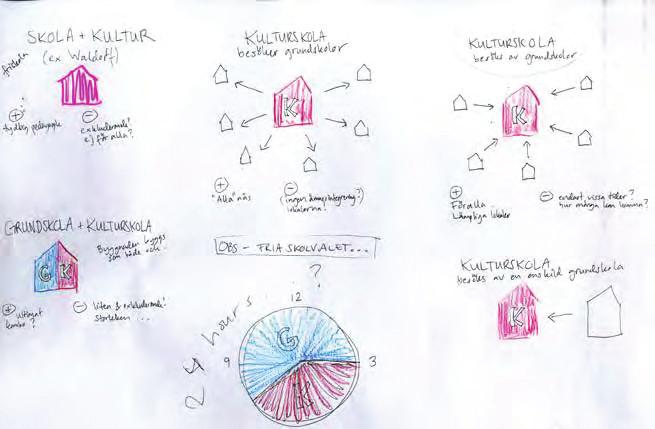 SKOLA + KULTUR
(ex Waldorf)
friskola
+
tydlig pedagogik
−
exkluderande?
ej för alla?
KULTURSKOLA
besöker grundskolor
K
+
"Alla" nås
−
(ingen ämnesintegrering?)
lokalerna?
KULTURSKOLA
besöks av grundskolor
K
+
För alla
Lämpliga lokaler
−
endast vissa tider?
hur många kan komma?
GRUNDSKOLA + KULTURSKOLA
Byggnaden byggs
som både och
G K
+
ultimat
kombo?
−
liten & exkluderande?
storleken ...
OBS - FRIA SKOLVALET...
?
24 hours
12
3
9
G
K
KULTURSKOLA
besöks av en enskild grundskola
K